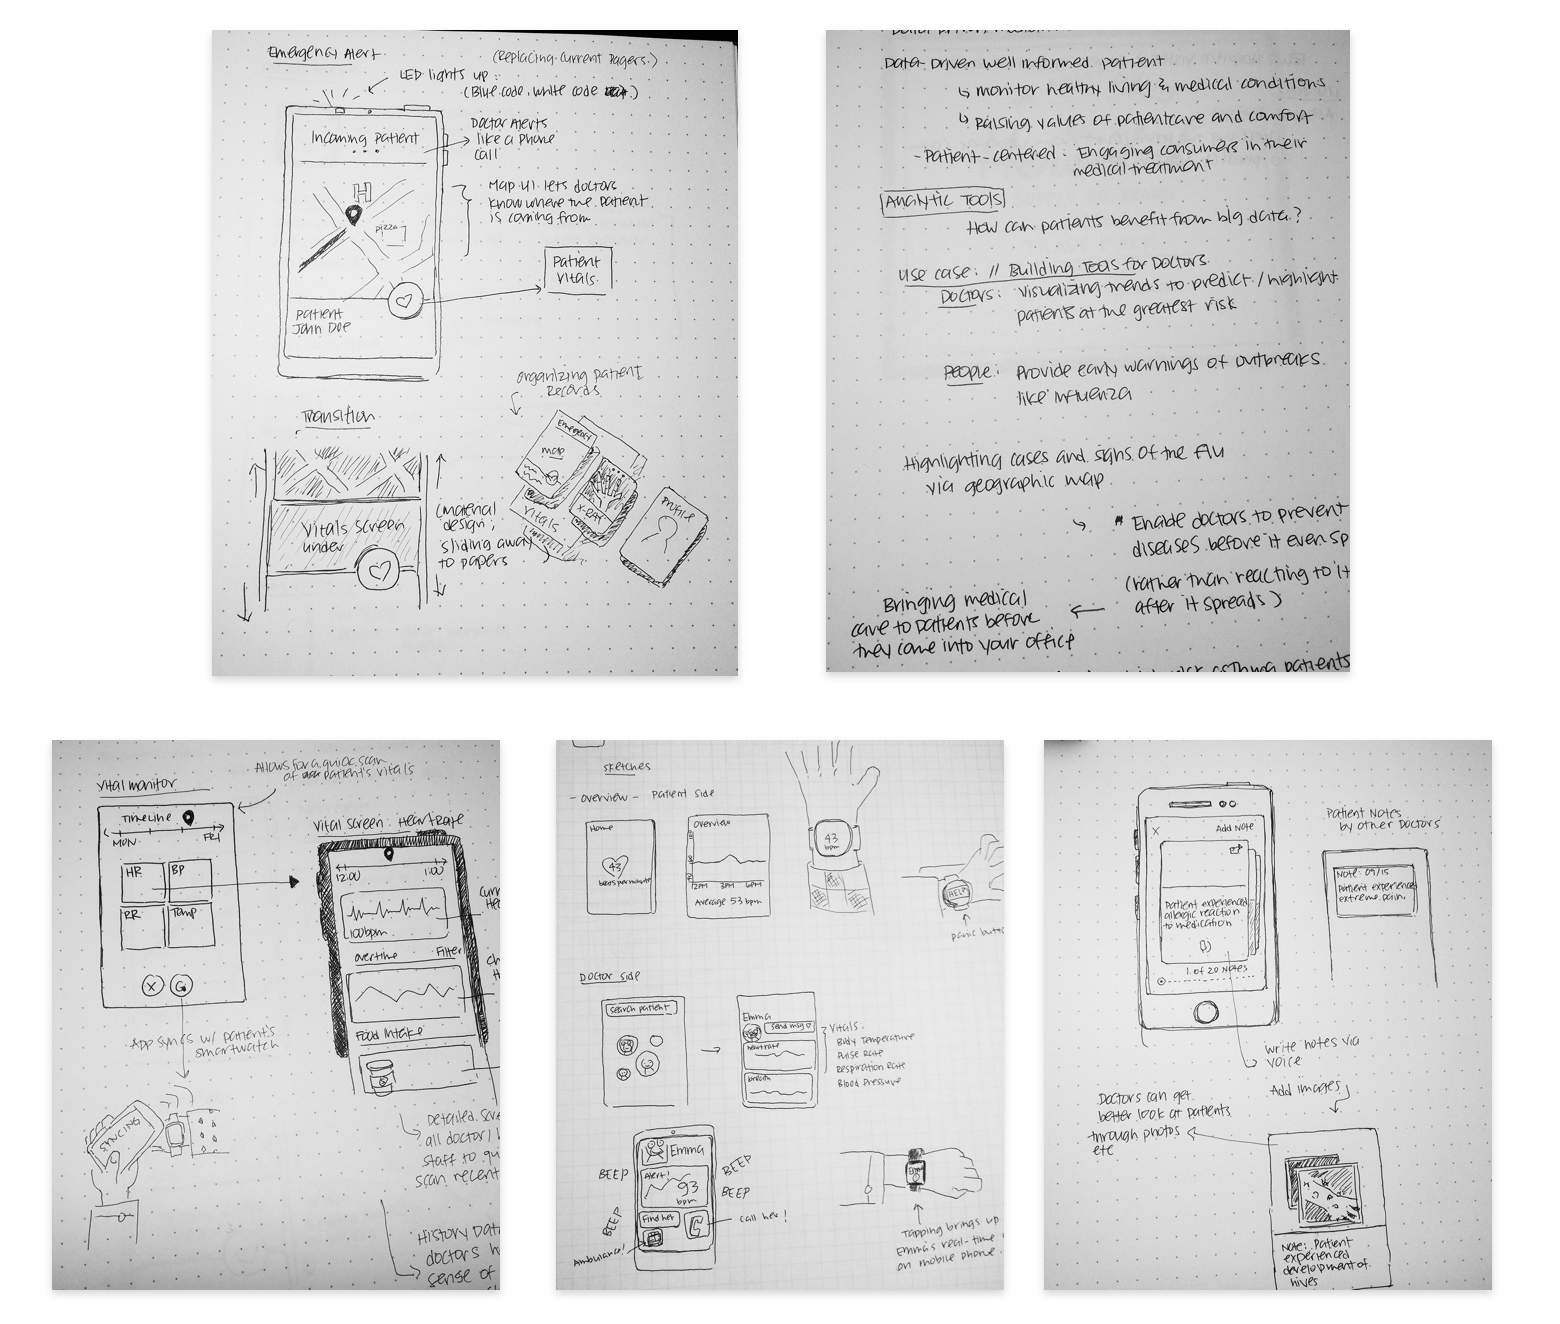 Emergency Alert
(Replacing current Pagers.)
LED lights up:
(Blue code, white code)
Incoming Patient
Doctor Alerts
like a phone
call
H
pizza
Map UI lets doctors
know where the patient
is coming from
Patient
Vitals
Patient
Jann Doe
Transition
Vitals screen
under
(material
design,
sliding away
to papers
Organizing patient
Records
Emergency
map
Vitals
X-RAY
Profile
Data-Driven well informed patient
↳ monitor healthy living & medical conditions
↳ Raising values of patientcare and comfort
- Patient-centered: Engaging consumers in their
medical treatment
Analytic Tools
How can patients benefit from big data?
Use case: // Building Tools for Doctors
Doctors: Visualizing trends to predict / highlight
patients at the greatest risk
People: Provide early warnings of outbreaks
like influenza
Highlighting cases and signs of the Flu
via geographic map
* Enable doctors to prevent
diseases before it even sp
(rather than reacting to it
after it spreads)
Bringing medical
care to patients before
they come into your office
asthma patients
Vital monitor
Allows for a quick scan
of patient's vitals
Timeline
MON
FRI
HR
BP
RR
Temp
X
App syncs w/ patient's
smartwatch
SYNCING
Vital screen: HeartRate
12:00
1:00
100bpm
overtime
Filter
Food Intake
Detailed
all doctor/
staff to qu
scan recent
History Data
doctors h
sense of
Sketches
- Overview - Patient side
Home
43
beats per minute
Overview
2PM 3PM 6PM
Average 53 bpm
43
bpm
HELP
panic butto
Doctor side
search patient
Emma
send msg
heartrate
breath
Vitals.
Body Temperature
Pulse Rate
Respiration Rate
Blood Pressure
Emma
Alert!
93
bpm
Find her
BEEP
BEEP
BEEP
BEEP
Call her!
Ambulance!
Tapping brings up
Emma's real-time
on mobile phone.
X
Add Note
Patient experienced
allergic reaction
to medication
1 of 20 Notes
Patient Notes
by other Doctors
Note: 09/15
Patient experienced
extreme pain.
write notes via
voice
Doctors can get
better look at patients
through photos
etc
Add images
Note: Patient
experienced
development of
hives